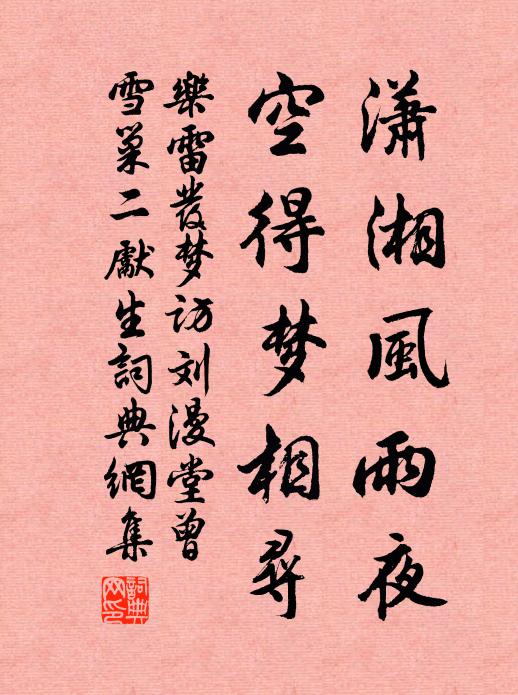 瀟湘風雨夜
空得梦相尋
樂雷發梦访刘漫堂曾
雪巢二獻生詞典網集
詞典网印